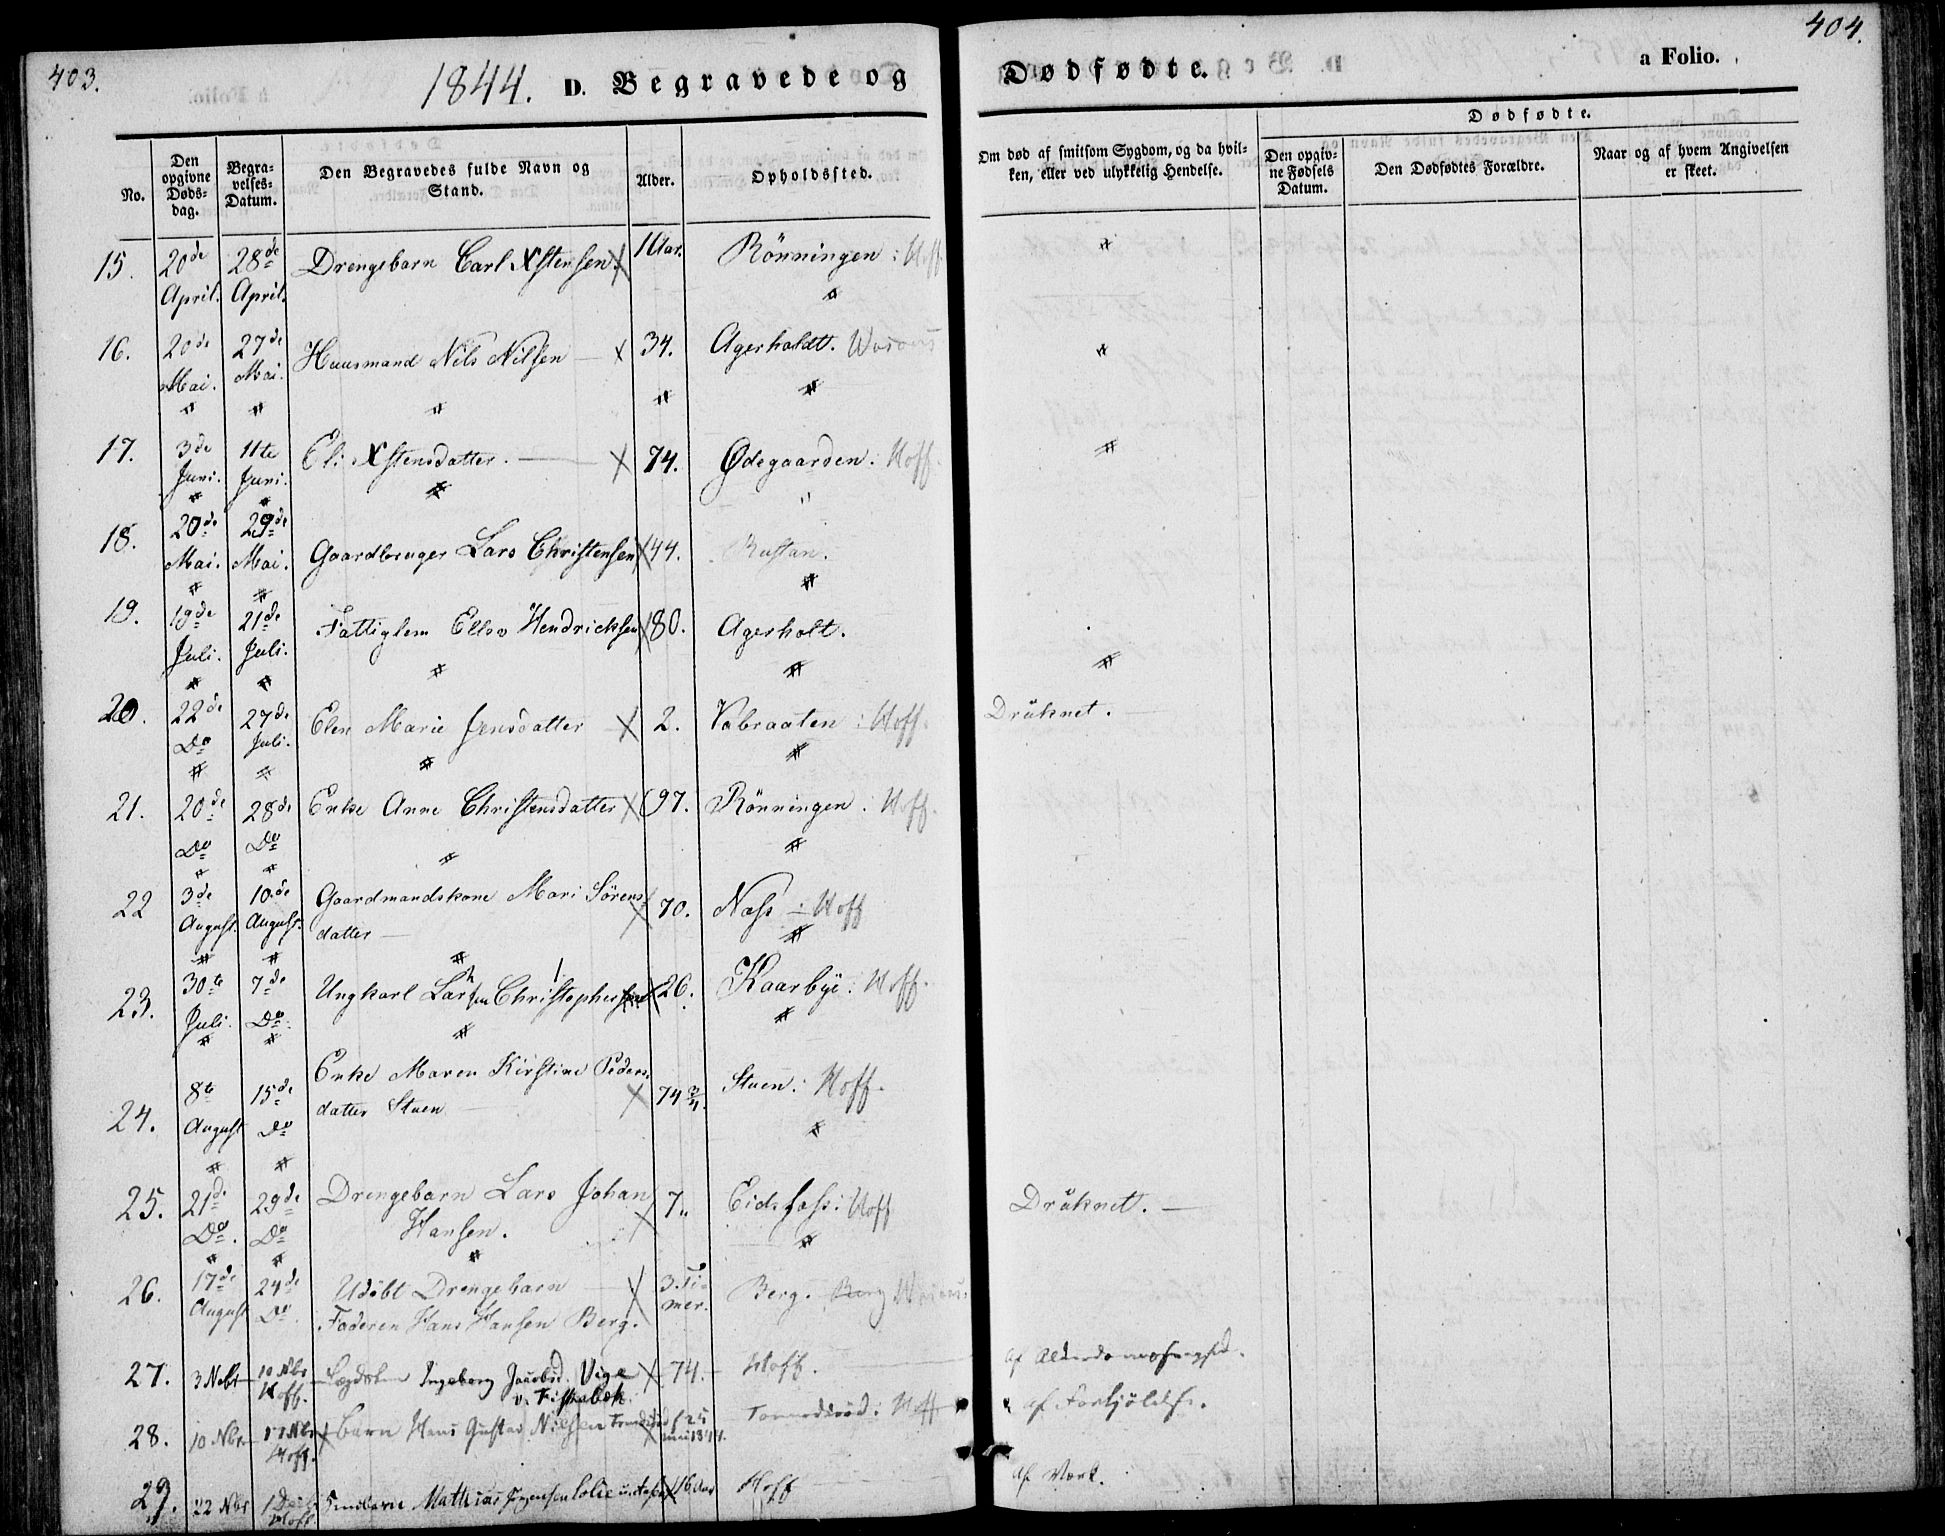 403.
404.
1844. D. Begravede og Dødfødte. a Folio.
Dødfødte.
No.
Den opgivne Døds-dag.
Begra-velses-Datum.
Den Begravedes fulde Navn og Stand.
Alder.
Opholdssted.
Om død af smitsom Sygdom, og da hvil-
ken, eller ved ulykkelig Hendelse.
Den opgiv-ne Fødsels Datum.
Den Dødfødtes Forældre.
Naar og af hvem Angivelsen er skeet.
15. 20de April. 28de April. Drengebarn Carl Xstensen X 1 Aar. Rönningen : Hoff
16. 20de Mai. 27de Mai. Huusmand Nils Nilsen — X 34. Agerholdt.
17. 3de Juni. 11te Juni. Eli Xstensdatter. — X 74. Ødegaarden : Hoff.
18. 20de Mai. 29de Mai. Gaardbruger Lars Christensen X 44. Rustan.
19. 19de Juli. 21de Juli. Fattiglem Ellev Hendricksen X 80. Agerholt.
20. 22de Do 27de Juli. Elen Marie Jensdatter X 2. Vabraaten : Hoff. Druknet. —
21. 20de Do 28de Do Enke Anne Christensdatter X 97. Rönningen : Hoff.
22 3de August. 10de August. Gaardmandskone Mari Sörens-
datter — X 70. Næss : Hoff
23. 30te Juli. 7de Do. Ungkarl Larsen Christophersen X 26. Kaarbye : Hoff.
24. 8te August 15de Do Enke Maren Kirstine Peders-
datter Stuen — X 74 3/4. Stuen : Hoff.
25. 21de Do. 29de Do Drengebarn Lars Johan
Hansen. X 7. Eidsfoss : Hoff Druknet. —
26. 17de August 24de Do. Udöbt Drengebarn X 3 Ti-
mer.
Faderen Hans Hansen Berg. Berg.
27. 3 Nobr 10 Nbr Hoff. Ingeborg Jacobsd. Vige X 74. — Hoff. Af
28. 10 Nbr 17 Nbr Hoff. X Barn Hans Gustav Nilsen : Hoff af Forkjölelse.
29. 22 Nbr 1 Hoff. Mathias Jörgensen X 16 Aar Hoff af Værk.